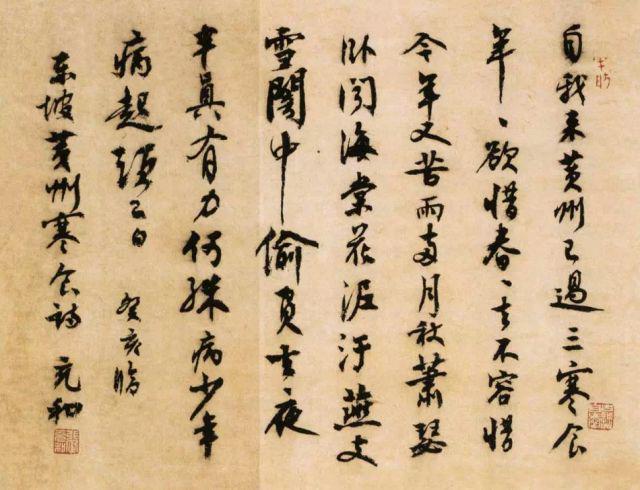 自我来黄州已過三寒食
年〻欲惜春〻去不容惜
今年又苦雨兩月秋蕭瑟
卧聞海棠花泥汙燕支
雪闇中偷負去夜
半真有力何殊病少年
病起頭已白
癸亥臨
東坡黄州寒食詩
充和